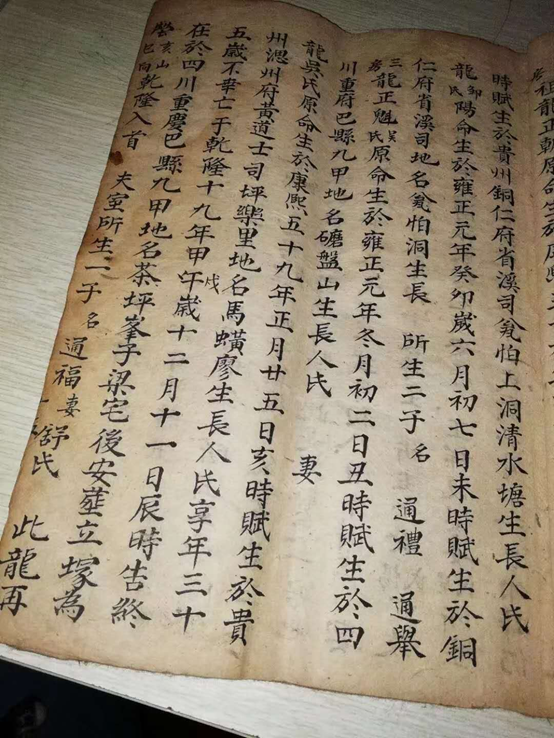 房祖龍正朝原命生於康熙
時賦生於貴州銅仁府省溪司瓮怕上洞清水塘生長人氏
龍氏郭陽命生於雍正元年癸卯歲六月初七日未時賦生於銅
仁府省溪司地名瓮怕洞生長 所生二子名 通禮 通舉
三房龍正魁吴氏原命生於雍正元年冬月初二日丑時賦生於四
川重府巴縣九甲地名磨盤山生長人氏 妻
龍吳氏原命生於康熙五十九年正月廿五日亥時賦生於貴
州思州府黃道士司坪樂里地名馬蟥廖生長人氏享年三十
五歲不幸亡于乾隆十九年甲午戌歲十二月十一日辰時告終
在於四川重慶巴縣九甲地名茶坪峯子梁宅後安葬立塚為
塋亥山巳向乾隆入首 夫室所生一子名通福妻舒氏 此龍再